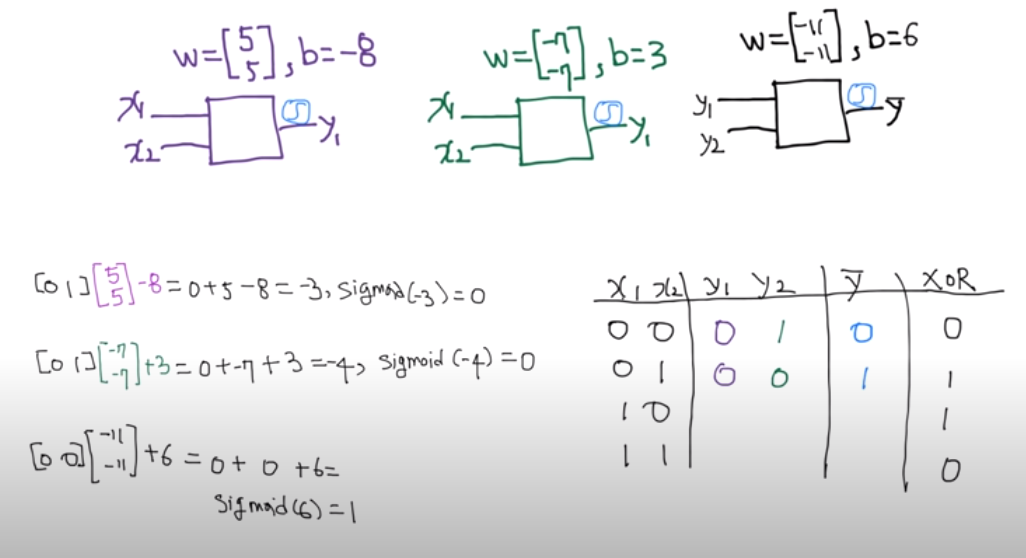 w=[5 5], b=-8
w=[-7 -7], b=3
w=[-11 -11], b=6
x1 S y1
x2
x1 S y1
x2
y1 S ȳ
y2
[0 1][5 5]-8=0+5-8=-3, sigmoid(-3)=0
[0 1][-7 -7]+3=0+-7+3=-4, sigmoid(-4)=0
[0 0][-11 -11]+6=0+0+6=
sigmoid(6)=1
x1 x2 y1 y2 ȳ XOR
0 0 0 1 0 0
0 1 0 0 1 1
1 0 1
1 1 0